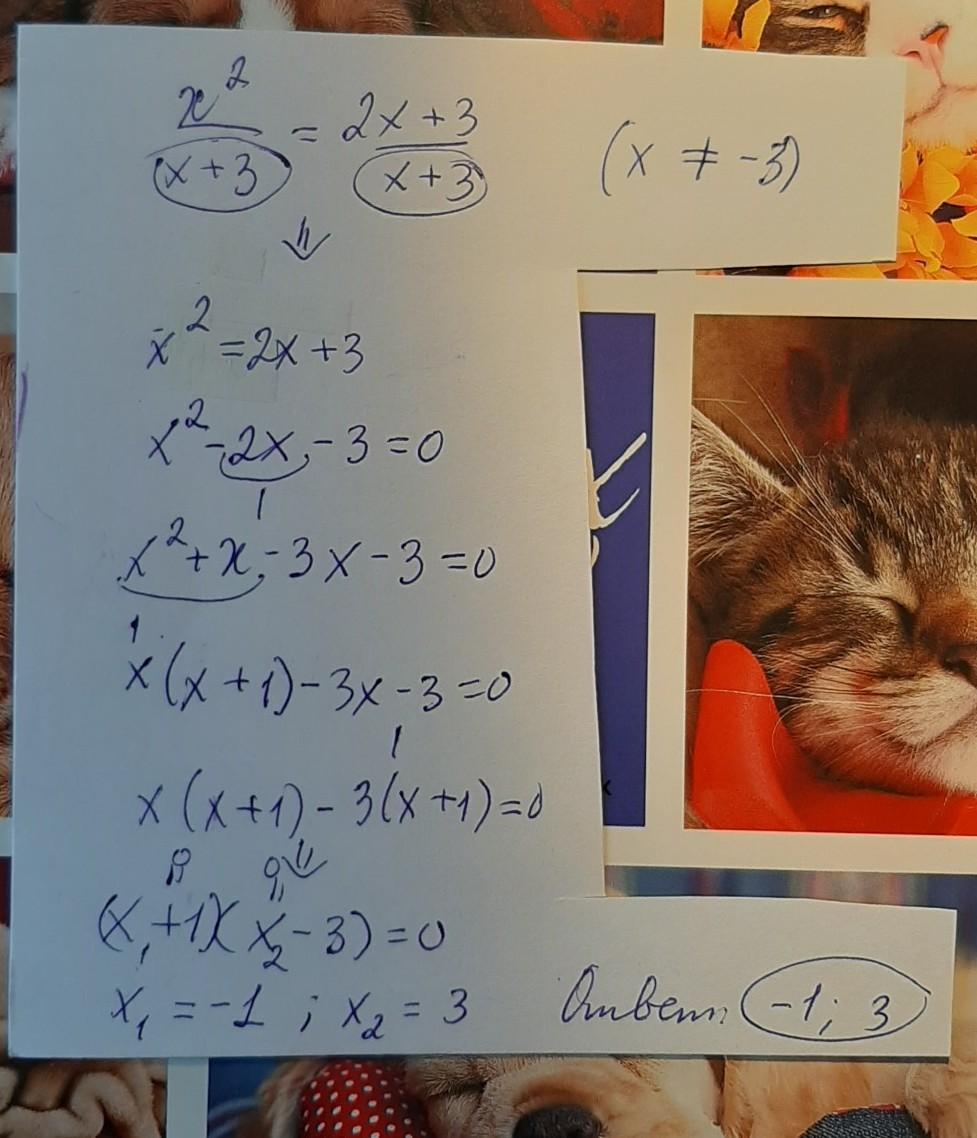 x² / (x+3) = (2x+3) / (x+3) (x ≠ -3)
⇓
x² = 2x+3
x² - 2x - 3 = 0
x² + x - 3x - 3 = 0
x(x+1) - 3x - 3 = 0
x(x+1) - 3(x+1) = 0
⇓
(x₁+1)(x₂-3) = 0
x₁ = -1 ; x₂ = 3 Ответ: -1; 3